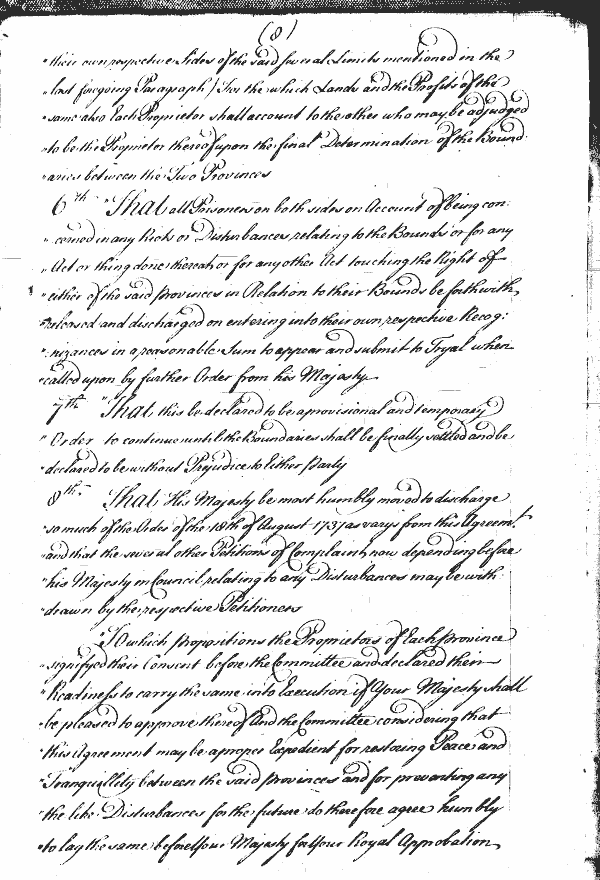 (8)
"their own respective Sides of the said several Limits mentioned in the
"last foregoing Paragraph) For the which Lands and the Profits of the
"same also Each Proprietor shall account to the other who may be adjudged
"to be the Proprietor thereof upon the final Determination of the Bound
"aries between the Two Provinces
6th "That all Prisoners on both sides on Account of being con:
"cerned in any Riots or Disturbances relating to the Bounds or for any
"Act or thing done thereat or for any other Act touching the Right of
"either of the said Provinces in Relation to their Bounds be forthwith
"released and discharged on entering into their own respective Recog:
"nizances in a reasonable Sum to appear and submit to Tryal when
"called upon by further Order from his Majesty
7th "That this be declared to be a provisional and temporary
"Order to continue until the Boundaries shall be finally settled and be
"declared to be without Prejudice to Either Party
8th "That His Majesty be most humbly moved to discharge
"so much of the Order of the 18th of August 1737 as varys from this Agreemt.
"and that the several other Petitions of Complaint now depending before
"his Majesty in Council relating to any Disturbances may be with
"drawn by the respective Petitioners
"To which Propositions the Proprietors of Each Province
"signifyed their Consent before the Committee and declared their
"Readiness to carry the same into Execution if Your Majesty shall
"be pleased to approve thereof And the Committee considering that
"this Agreement may be a proper Expedient for restoring Peace and
"Tranquillity between the said Provinces and for preventing any
"the like Disturbances for the future do therefore agree humbly
"to lay the same before Your Majesty for Your Royal Approbation